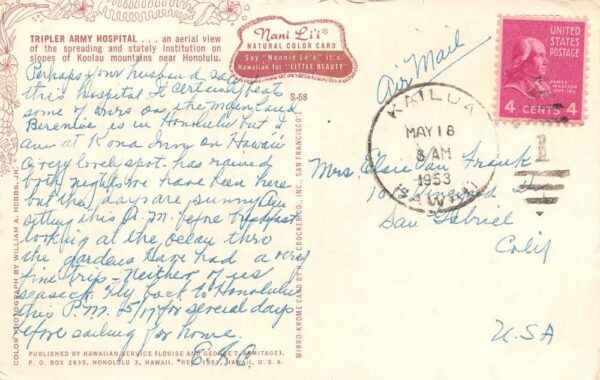 TRIPLER ARMY HOSPITAL . . . an aerial view
of the spreading and stately institution on
slopes of Koolau mountains near Honolulu.
Nani Li'i*
NATURAL COLOR CARD
Say "Nonnie Le'e" it's
Hawaiian for "LITTLE BEAUTY"
S-58
Perhaps your husband
this hospital It certainly beat
some of ours on the mainland
Bernice is in Honolulu but I
am at Kona Inn on Hawaii
a very lovely spot. has rained
both nights we have been here
but the days are sunny. Am
sitting this A.M. before breakfast
looking at the ocean thro
the gardens have had a very
fine trip - neither of us
seasick. Fly back to Honolulu
this P.M. 5/17 for several days
before sailing for home.
PUBLISHED BY HAWAIIAN SERVICE (LOUISE AND GEORGE T. ARMITAGE).
P. O. BOX 2835, HONOLULU 3, HAWAII. *REG. 1951, HAWAII, U. S. A.
COLOR PHOTOGRAPH BY WILLIAM A. HOBBS, JR.
MIRRO-KROME CARD BY H. S. CROCKER CO., INC. SAN FRANCISCO
Air Mail
UNITED
STATES
POSTAGE
JAMES
MADISON
4 CENTS 4
KAILUA
MAY 18
8 AM
1953
HAWAII
1
Mrs Elsie Van Frank
San Gabriel
Calif
USA